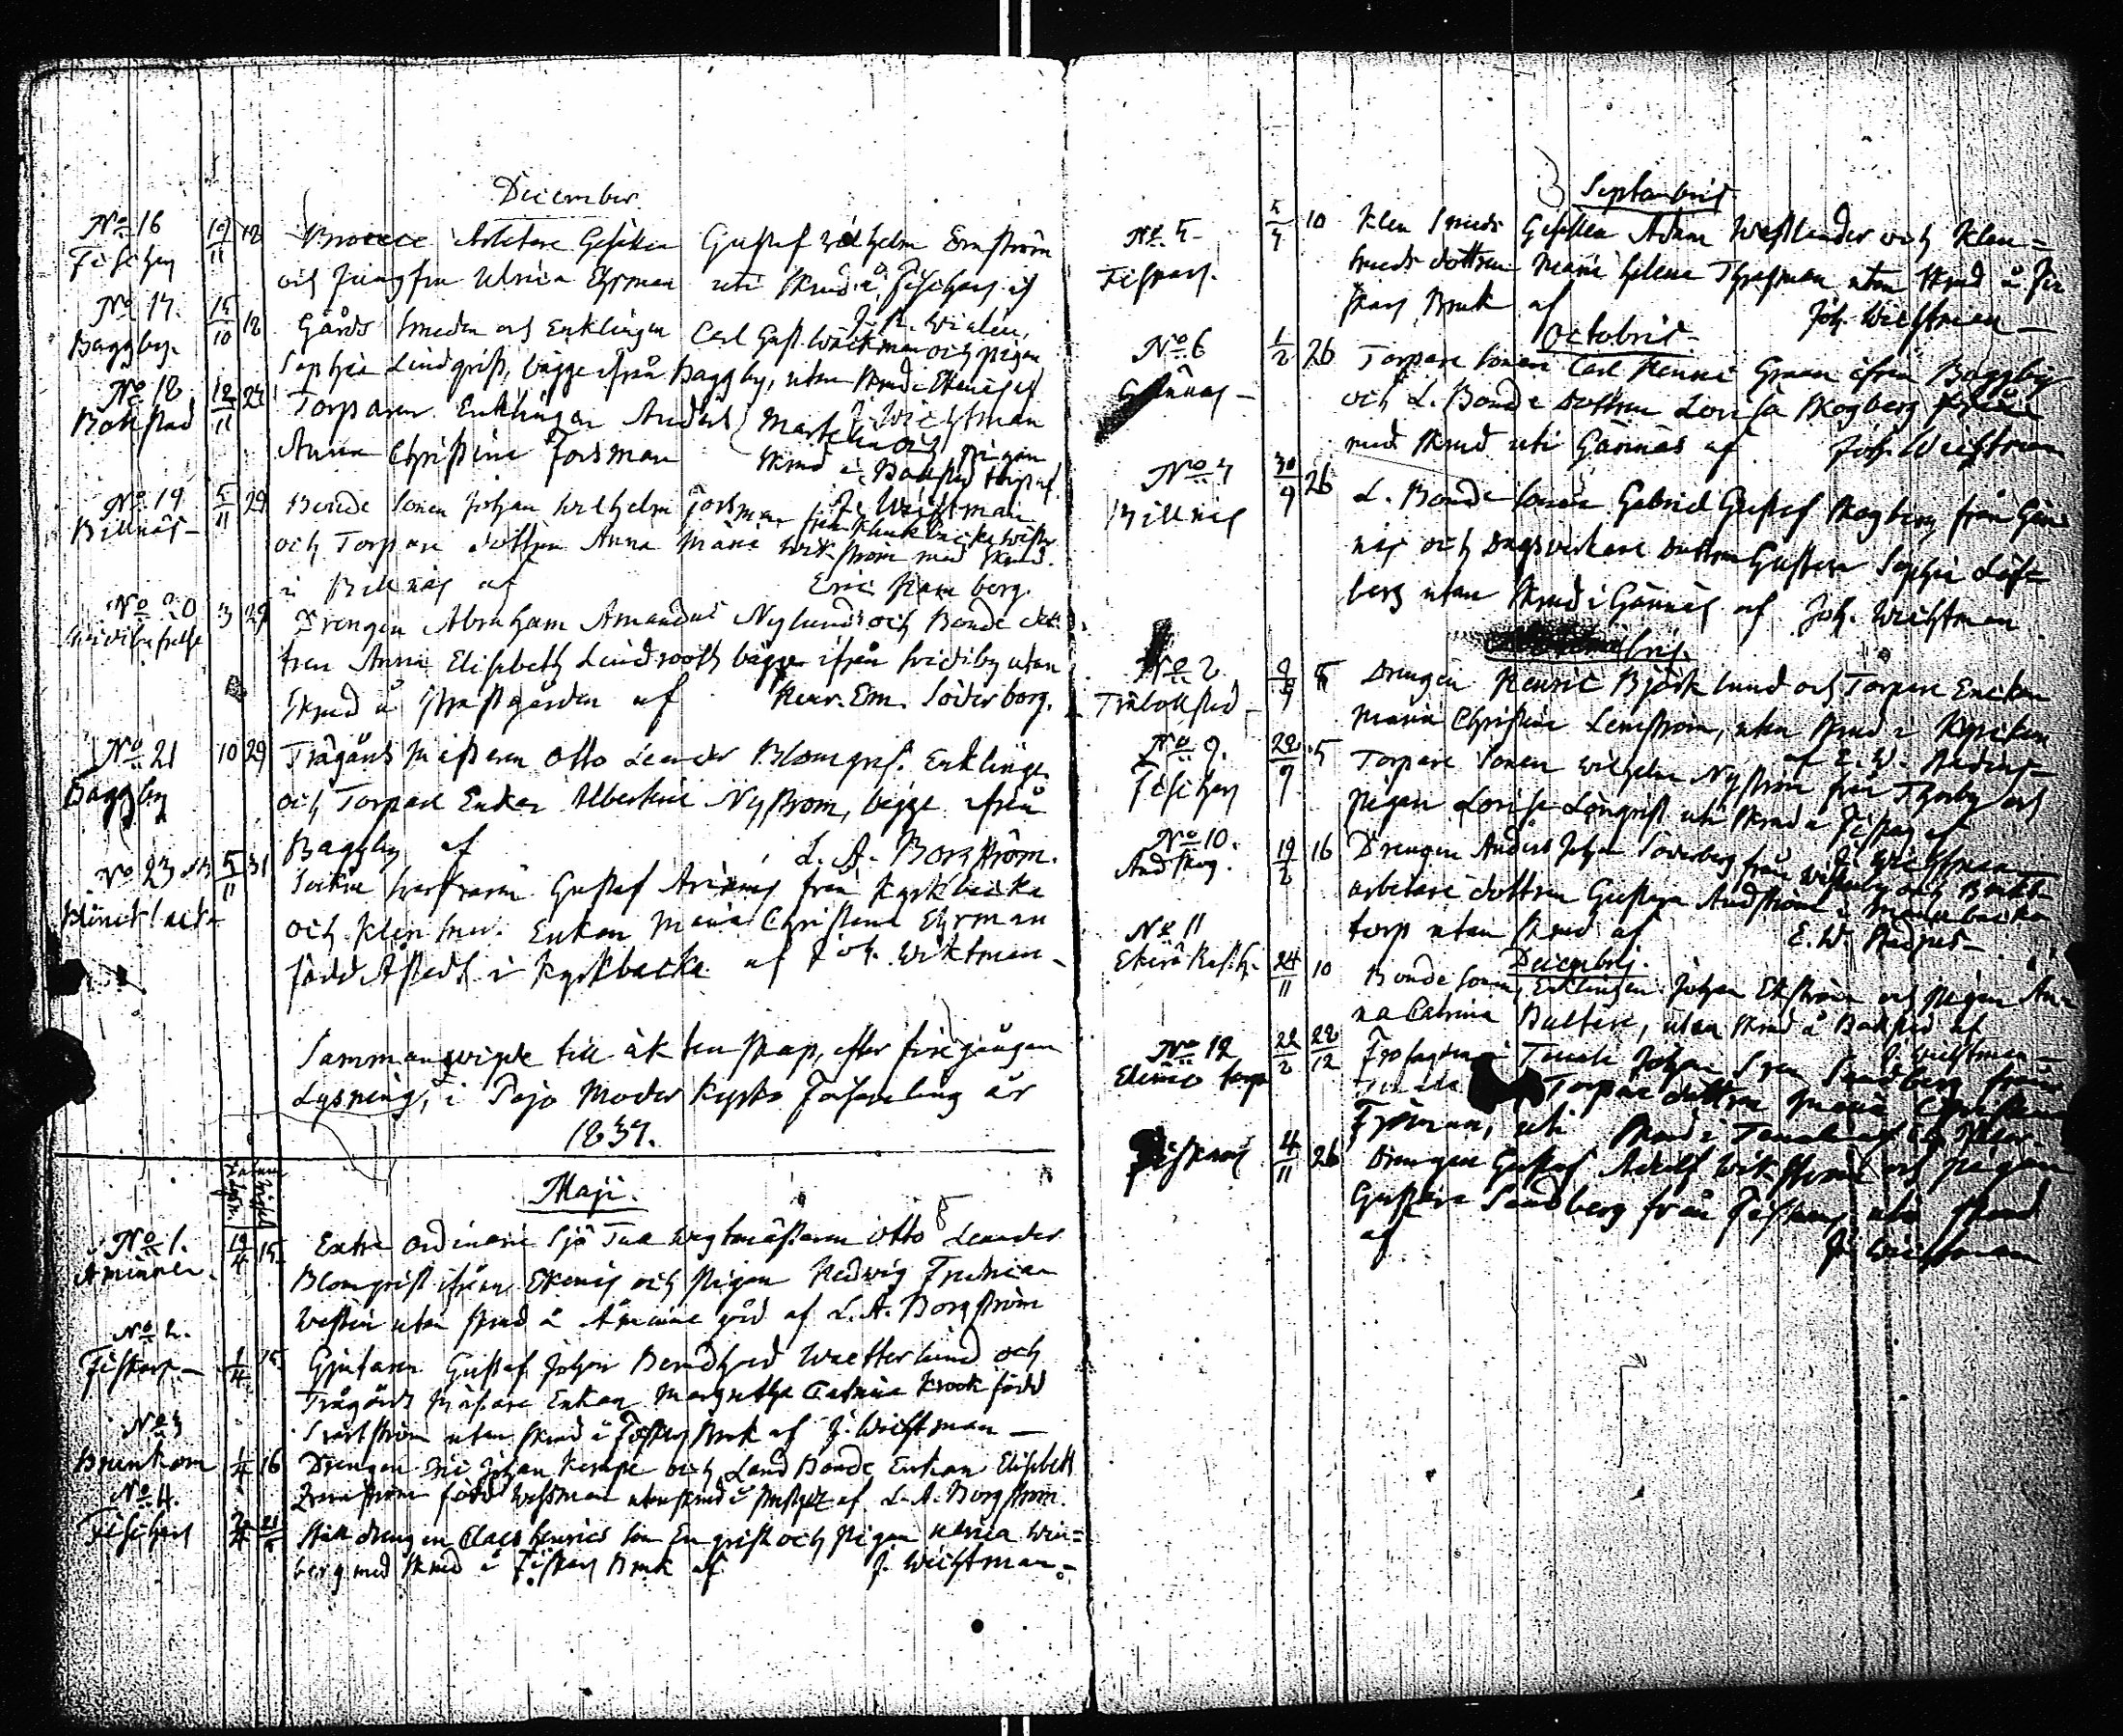 December.
No 16 Fischars 19/11 12 Bruks Arbetare Gesellen Gustaf Wilhelm Ernström
och Jungfru Ulrica Ehrman uti Skrud å Fischars af
J. H. Wialén.
No 17. Baggby. 15/10 12 Gårds Smeden och Enklingen Carl Gust. Wäckman och pigan
Sophia Lindqvist, bägge ifrån Baggby, utan Skrud i Ekenäs af
J. Wichtman
No 18 Bollstad 12/11 27 Torparen Enklingen Anders Martelin och pigan
Anna Christina Forsman Skrud i Bollstad torp af
J. Wichtman
No 19 Billnäs - 5/11 29 Bonde Sonen Johan Wilhelm Forsman från
och Torpare dottren Anna Maria Wikström med Skrud.
i Billnäs af Eric Hamberg.
No 20 3 29 Drengen Abraham Amandus Nylund och Bonde dot-
tren Anna Elisabeth Lindroos bägge ifrån Svidiby utan
Skrud å Prestgården af Henr. Em. Söderborg.
No 21 Baggby 10 29 Trägårds Mästaren Otto Leander Blomqvist Enklinge
och Torpare Enkan Albertina Nyström, bägge ifrån
Baggby af L. A. Borgström.
No 23 5/11 31 Gustaf från Kyrkbacka
och Klen Smed. Enkan Maria Christina Ehrman
född Åstedt i Kyrkbacka af Joh. Wiktman -
Sammanwigde till äktenskap, efter föregången
Lysning, i Pojo Moder Kyrko Församling år
1837.
Maji.
No 1. Åminne. 19/4 15. Extra ordinarie Sjö Tull Wagtmästaren Otto Leander
Blomqvist ifrån Ekenäs och Pigan Hedwig Fredrica
Westin utan Skrud å Åminne gård af L. A. Borgström
No 2. Fiskars - 1/4 15 Gjutaren Gustaf Johan Berndhard Wetterlund och
Trägårds Mästare Enkan Margretha Catrina Krook född
Svartström utan Skrud å Fiskars Bruk af J. Wichtman -
No 3 Brunkom 1/4 16 Drengen Eric Johan Kempe och Land Bonde Enkan Elisabeth
född Wessman utan skrud i af L. A. Borgström.
No 4. Fischars 21 Stall drengen Claes Henricsson Engvist och Pigan Ulrica Win=
berg med Skrud å Fiskars Bruk af J. Wichtman -
Septembris
No 5 - Fiskars. 5/7 10 Klen Smeds Gesellen Adam Westlinder och Klen=
smeds dottren Maria Helena Thesman utan Skrud å Fis
kars Bruk af Joh. Wichtman -
Octobris -
No 6 Gännäs - 1/2 26 Torpare Sonen Carl Henric Graan ifrån Baggby
och L. Bonde Dottren Lovisa Skogberg
med Skrud uti Gännäs af Joh. Wichtman
No 7 Billnäs 30/9 26 L. Bonde Sonen Gabriel Gustaf Skogberg från Gän
näs och Dagsverkare Dottren Gustava Sophia Löf=
berg utan Skrud i Gännäs af Joh. Wichtman
No 8 Trädbollstad - 9/9 5 Drengen Henric Björklund och Torpare Enckan
Maria Christina Lenström, utan Skrud i Kyrkan
af E. W. Hedner -
No 9. Fischars 28/9 5 Torpare Sonen Wilhelm Nyström från Thorby och
pigan Lovisa Lönqvist uti Skrud å Fiskars af
J. Wichtman -
No 10. Andskog. 19/2 16 Drengen Anders Johan Söderberg från och Bruks
arbetare dottren Gustava Andström i
torp utan Skrud af E. W. Hedner -
Decembris.
No 11 24/11 10 Bonde Sonen, Enklingen Johan Ekström och pigan An-
na Catrina Bulters, utan Skrud å Bollstad af
J. Wichtman -
No 12 22/2 22/12 Tenala Johan Sandberg från
Torpare dottren Maria Christina
uti Skrud i Tenala af
Fiskars 4/11 26 Drengen Gustaf Adolf Wikström och pigan
Gustava Sandberg från Fiskars utan Skrud
af J. Wichtman